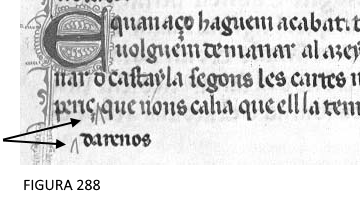 E quan aço haguem acabat. t
uolguem demanar al azey
nar d castayla segons les cartes
penç que nons calia que ell la tem
darenos
FIGURA 288